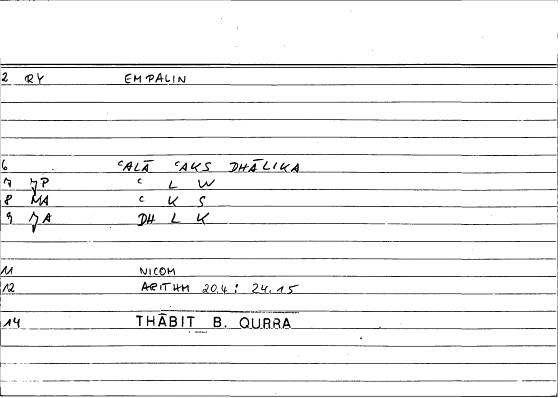 2 RY EMPALIN
6 ʿALĀ ʿAKS DHĀLIKA
7 JP ʿ L W
8 MA ʿ K S
9 JA DH L K
11 NICOM
12 ARITHM 20.4 : 24.15
14 THĀBIT B. QURRA